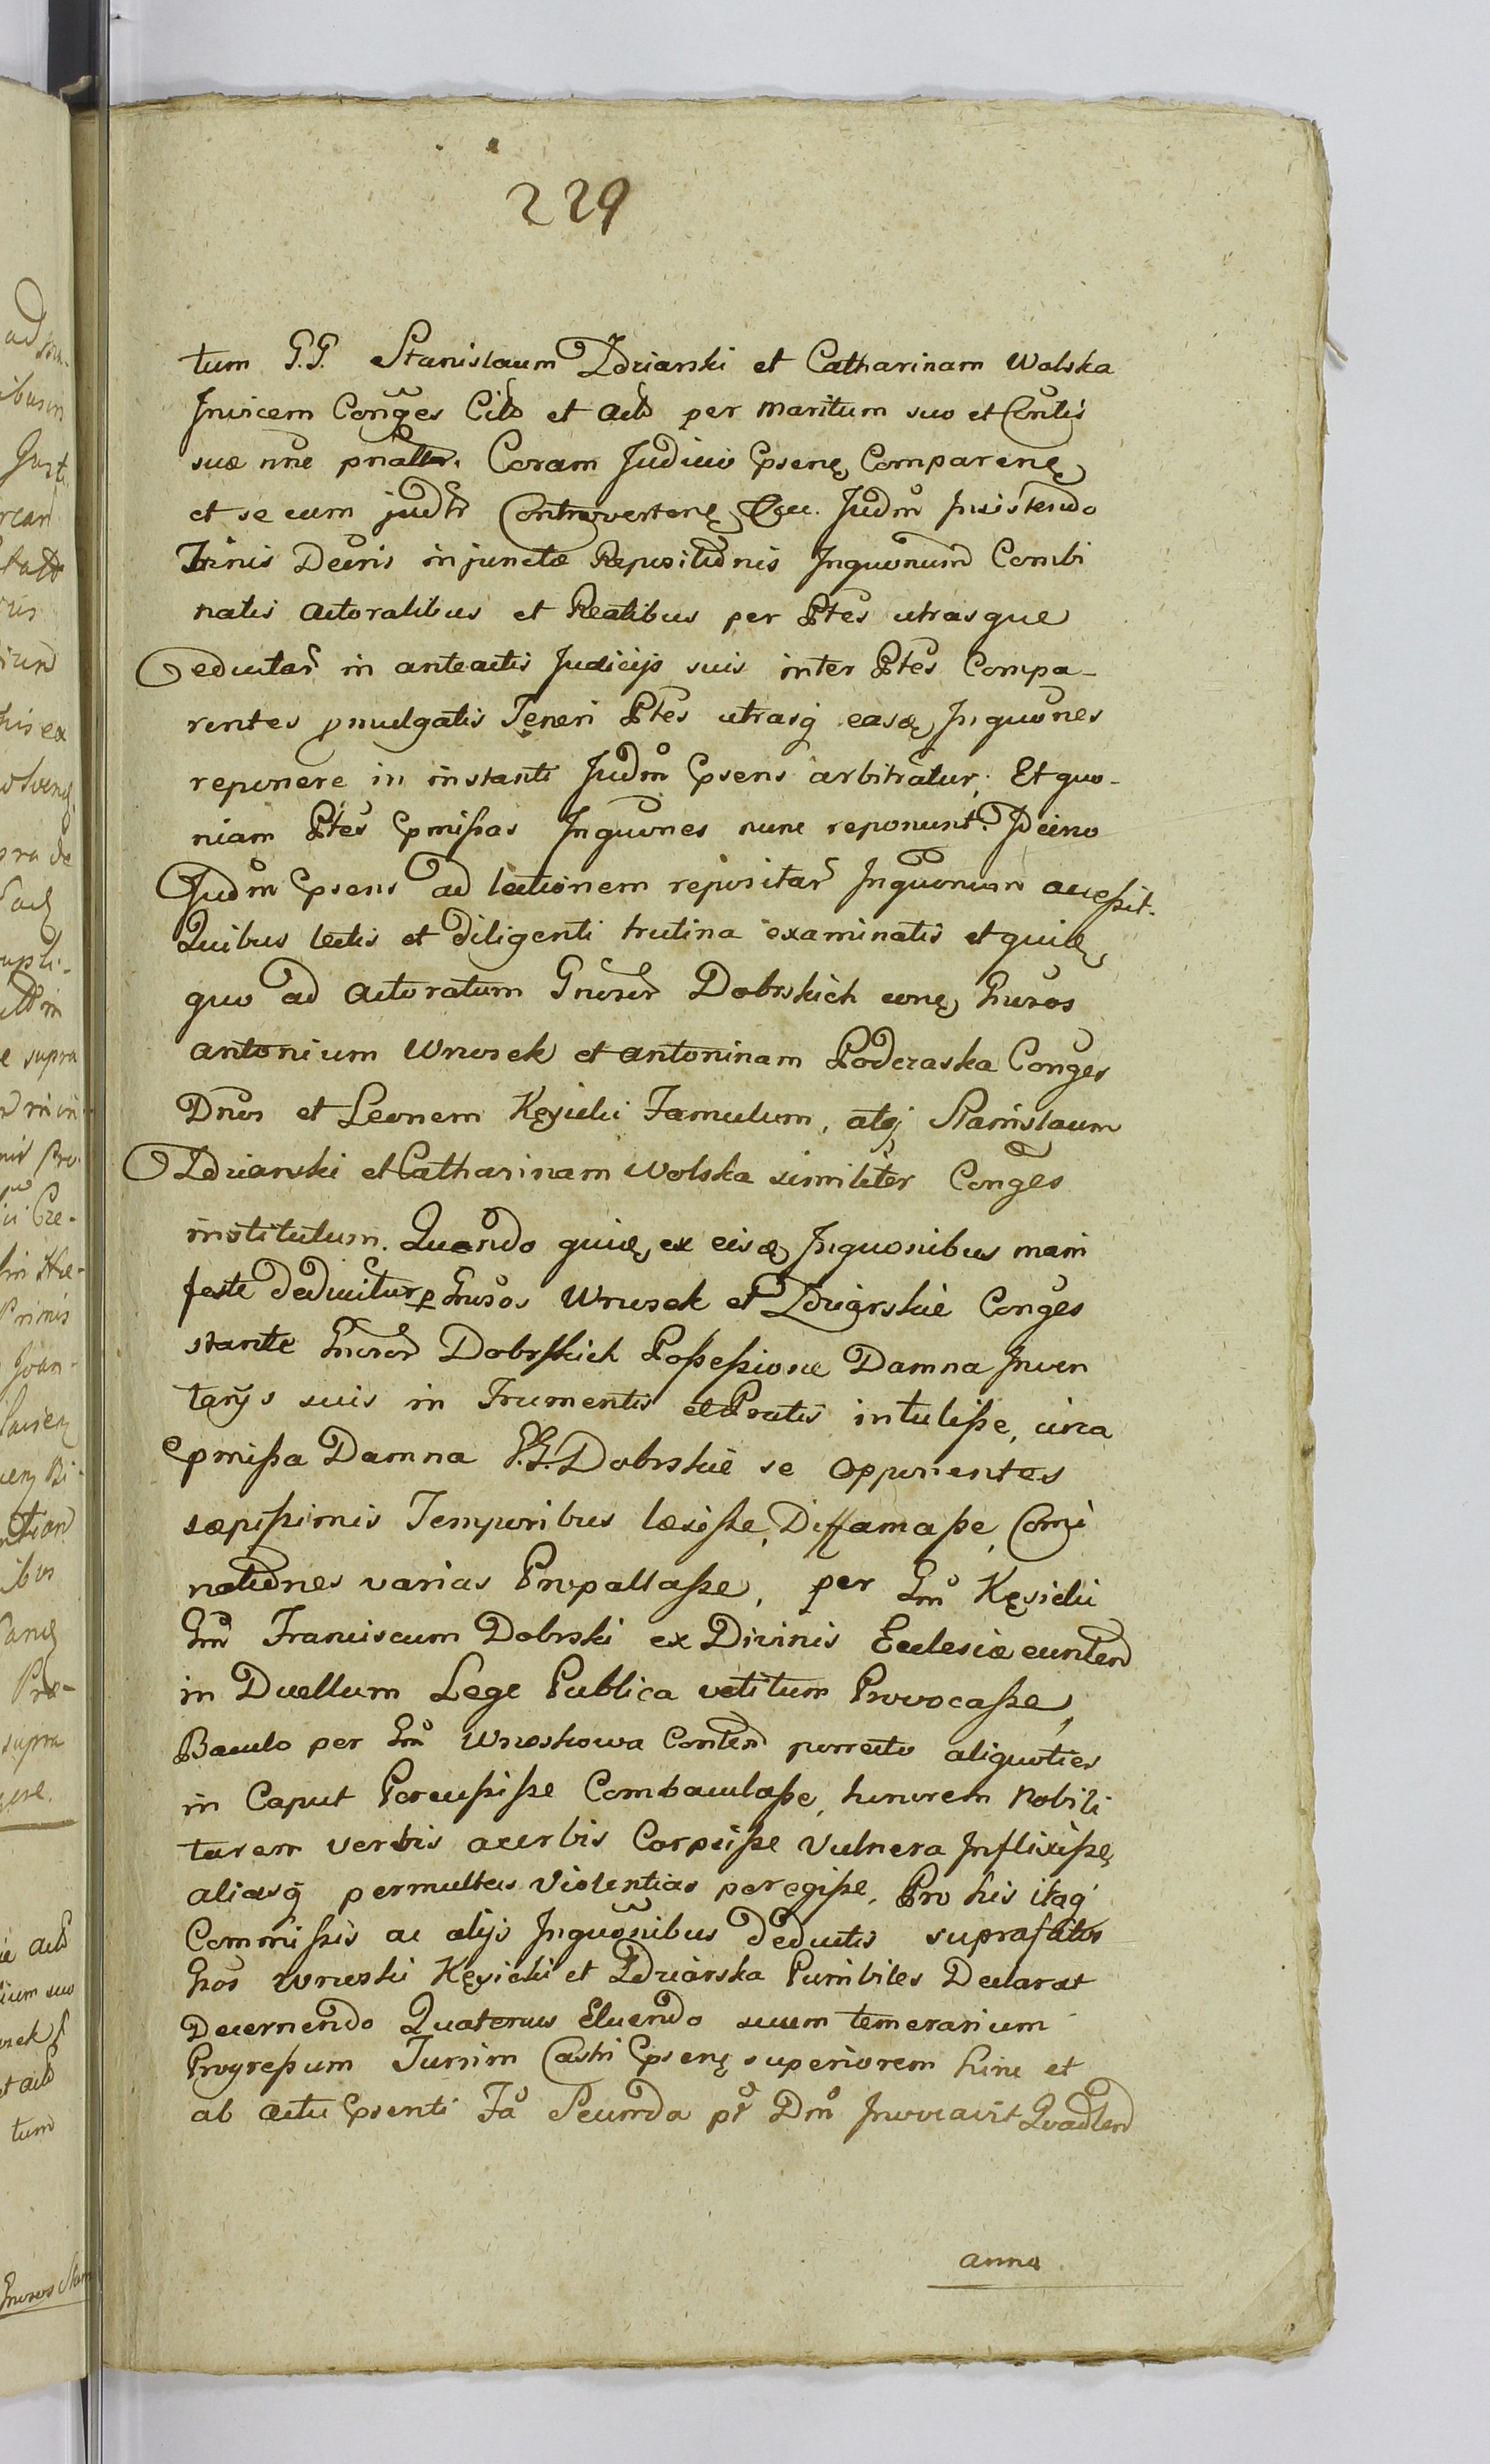 229
tum G.G. Stanislaum Zdziarski et Catharinam Wolska
Invicem Conges Citō et actō per maritum suo et Contis
suæ nne pnalr. Coram Judicio Epsenę Comparenę
et se cum judr Controvertenę Judm Insistendo
Trinis Decris injunctæ Repositionis Inquonum Combi
natis actoralibus et Realibus per Ptes utrasque
eductar in anteactis Judicijs suis inter Ptes Compa-
rentes pmulgatis Teneri Ptes utrasq easę Inquones
reponere in instanti Judm Epsens arbitratur. Et quo-
niam Ptes Epmißas Inquones nunc reponunt. Ideirco
Judm Epsens ad lectionem repositar Inquonum accessit.
Quibus lectis et diligenti trutina examinatis et quię
quo ad actoratum Gnosor Dobrskich conę Gnosos
antonium Wnosek et antoninam Podczaska Conges
Dnos et Leonem Kęsicki Famulum, atq Stanislaum
Zdziarski et Catharinam Wolska similiter Conges
institutum. Quando quię ex eisę Inquonibus mani
feste deducitur p Gnosos Wnosek et Zdziarskie Conges
stante Gnosor Dobrskich Poßeßione Damna Inven
tarijs suis in Frumentis et Pratis intuliße, circa
Epmißa Damna G.G. Dobrskie se opponentes
sæpißimis Temporibus læsiße, Diffamaße, Comi
nationes varias Propallaße, per Gm Kęsicki
Gm Franciscum Dobrski ex Divinis Ecclesiæ euntem
in Duellum Lege Publica vetitum Provocaße,
Baculo per Gm Wnoskowa Conten porrecto aliquoties
in Caput Percußiße Combaculaße, honorem Nobili
tarem verbis acerbis Corpsiße Vulnera Inflixiße,
aliasq permultas Violentias peregiße. Pro his itaq
Commißis ac alijs Inquonibus deductis suprafatos
Gnos Wnoski Kęsicki et Zdziarska Punibiles Declarat
Decernendo Quatenus Eluendo suum temerarium
Progreßum Turrim Castri Epsenę superiorem hinc et
ab actu Epsenti Fa Secunda pt Dm Invocavit Quadten
anna